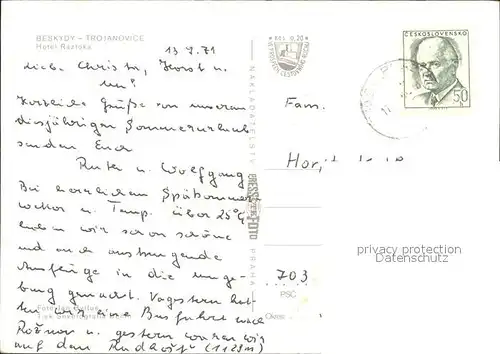 BESKYDY – TROJANOVICE
Hotel Ráztoka
13.9.71
Kčs 0,20
ČESKOSLOVENSKO
50
Liebe Christa, Horst u.
Herzliche Grüße von unserem
diesjährigen Sommerurlaub
senden Euch
Ruth u. Wolfgang
Bei herrlichem Spätsommer-
wetter u. Temp. über 25°C
haben wir schon schöne
und auch anstrengende
Ausflüge in die Umge-
bung gemacht. Vorgestern hat-
ten wir eine Busfahrt nach
Rožnov u. gestern waren wir
auf dem Radhošť (1129 m)
Fam.
Horst
703
PSČ
Okres
NAKLADATELSTVÍ
PRESSFOTO
PRAHA
privacy protection
Datenschutz